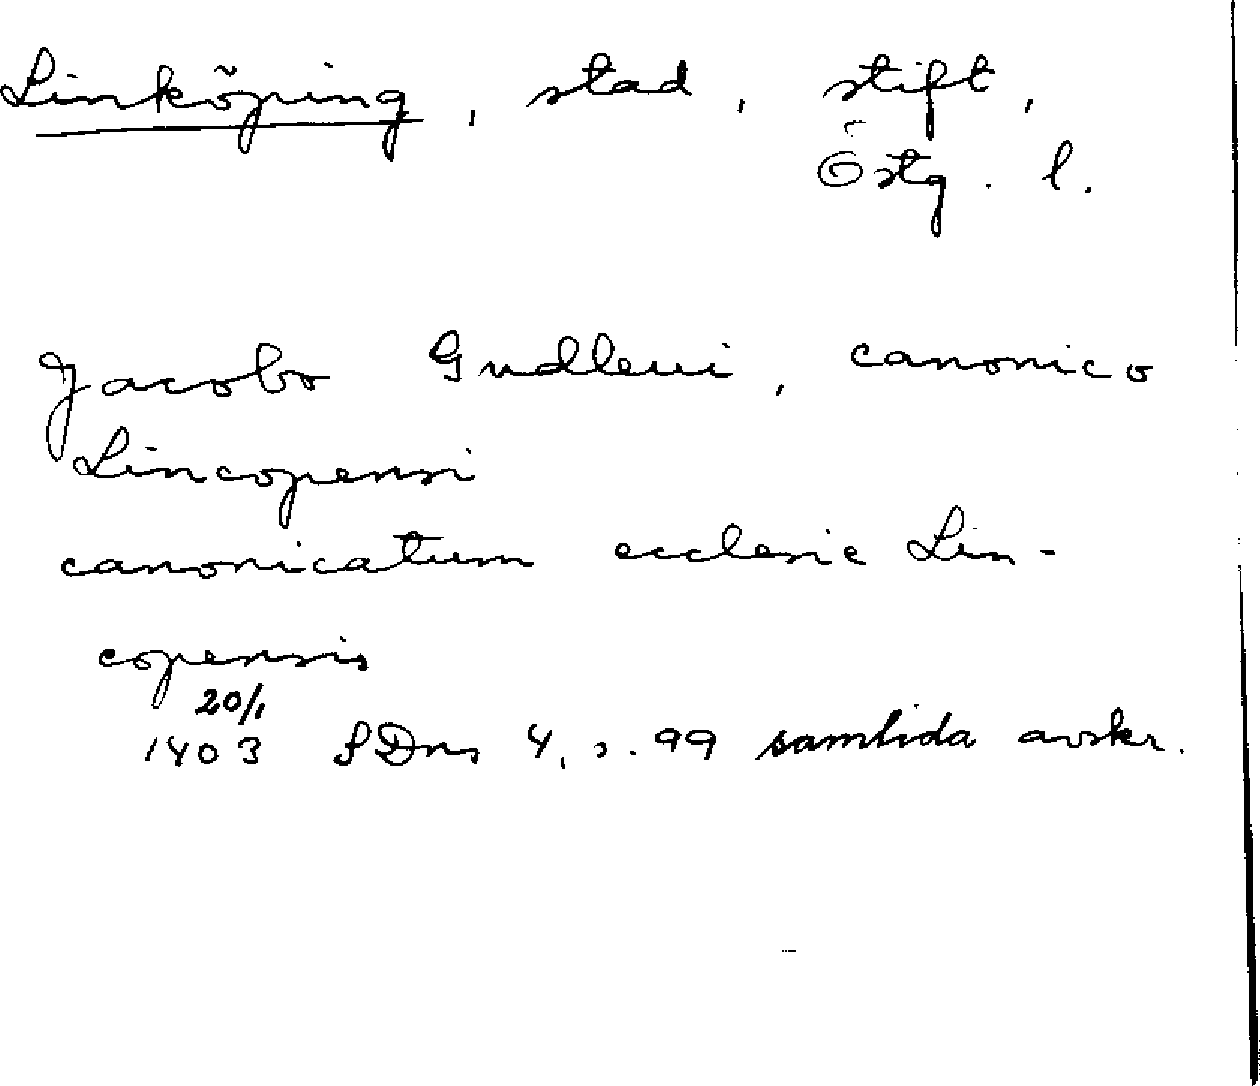 Linköping, stad, stift,
Östg. l.
Jacobo Gudleui, canonico
Lincopensi
canonicatum ecclesie Lin-
copensis
20/1
1403 SDns 4, s. 99 samtida avskr.